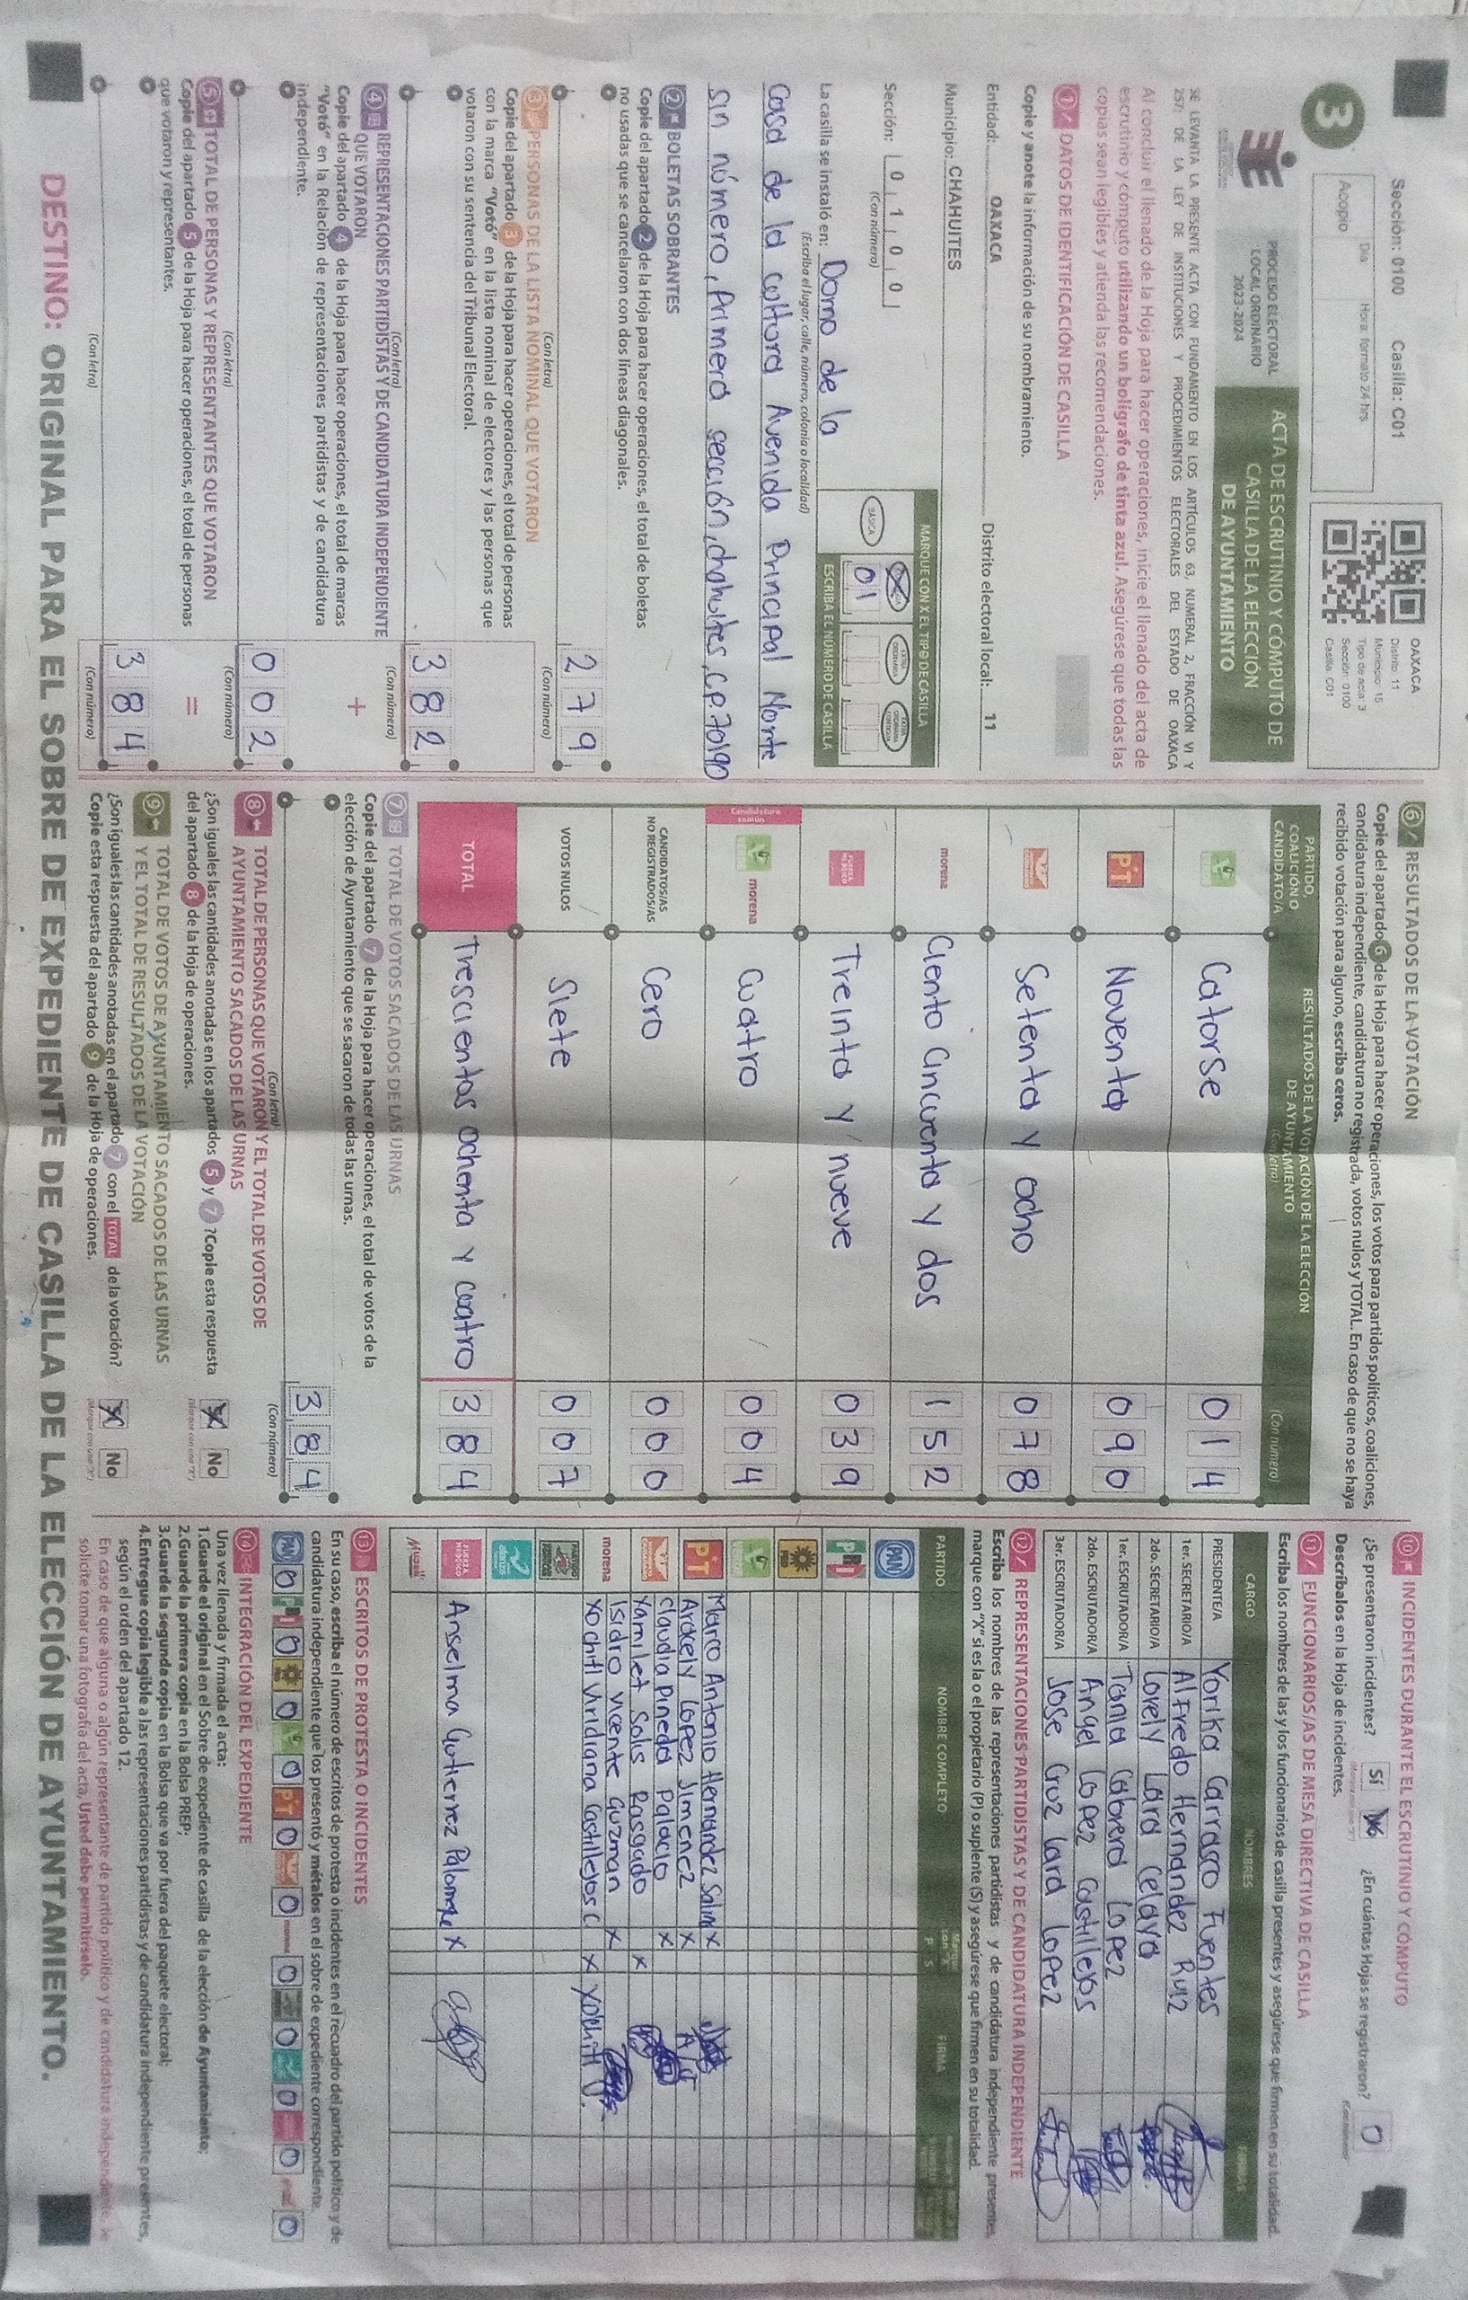 Sección: 0100 Casilla: C01
3
Día Hora: formato 24 hrs.
Acopio
OAXACA
Distrito: 11
Municipio: 15
Tipo de acta: 3
Sección: 0100
Casilla: C01
PROCESO ELECTORAL
LOCAL ORDINARIO
2023-2024
ACTA DE ESCRUTINIO Y CÓMPUTO DE
CASILLA DE LA ELECCIÓN
DE AYUNTAMIENTO
SE LEVANTA LA PRESENTE ACTA CON FUNDAMENTO EN LOS ARTÍCULOS 63, NUMERAL 2, FRACCIÓN VI Y
257; DE LA LEY DE INSTITUCIONES Y PROCEDIMIENTOS ELECTORALES DEL ESTADO DE OAXACA
Al concluir el llenado de la Hoja para hacer operaciones, inicie el llenado del acta de
escrutinio y cómputo utilizando un bolígrafo de tinta azul. Asegúrese que todas las
copias sean legibles y atienda las recomendaciones.
1 DATOS DE IDENTIFICACIÓN DE CASILLA
Copie y anote la información de su nombramiento.
Entidad: OAXACA Distrito electoral local: 11
Municipio: CHAHUITES
Sección: 0 1 0 0
(Con número)
MARQUE CON X EL TIPO DE CASILLA
BÁSICA
01
ESCRIBA EL NÚMERO DE CASILLA
La casilla se instaló en: Domo de la
(Escriba el lugar, calle, número, colonia o localidad)
Casa de la cultura Avenida Principal Norte
sin número, Primera sección, chahuites, C.P. 70190
2 BOLETAS SOBRANTES
Copie del apartado 2 de la Hoja para hacer operaciones, el total de boletas
no usadas que se cancelaron con dos líneas diagonales.
2 7 9
(Con letra) (Con número)
3 PERSONAS DE LA LISTA NOMINAL QUE VOTARON
Copie del apartado 3 de la Hoja para hacer operaciones, el total de personas
con la marca "Votó" en la lista nominal de electores y las personas que
votaron con su sentencia del Tribunal Electoral.
3 8 2
(Con letra) (Con número)
4 REPRESENTACIONES PARTIDISTAS Y DE CANDIDATURA INDEPENDIENTE
QUE VOTARON
+
Copie del apartado 4 de la Hoja para hacer operaciones, el total de marcas
"Votó" en la Relación de representaciones partidistas y de candidatura
independiente.
0 0 2
(Con letra) (Con número)
5 TOTAL DE PERSONAS Y REPRESENTANTES QUE VOTARON
=
Copie del apartado 5 de la Hoja para hacer operaciones, el total de personas
que votaron y representantes.
3 8 4
(Con letra) (Con número)
6 RESULTADOS DE LA VOTACIÓN
Copie del apartado 6 de la Hoja para hacer operaciones, los votos para partidos políticos, coaliciones,
candidatura independiente, candidatura no registrada, votos nulos y TOTAL. En caso de que no se haya
recibido votación para alguno, escriba ceros.
PARTIDO,
COALICIÓN O
CANDIDATO/A
RESULTADOS DE LA VOTACIÓN DE LA ELECCIÓN
DE AYUNTAMIENTO
(Con letra) (Con número)
Catorse 0 1 4
PT Noventa 0 9 0
Setenta y ocho 0 7 8
morena Ciento cincuenta y dos 1 5 2
FUERZA MÉXICO Treinta y nueve 0 3 9
Candidatura común
morena Cuatro 0 0 4
CANDIDATOS/AS
NO REGISTRADOS/AS Cero 0 0 0
VOTOS NULOS Siete 0 0 7
TOTAL Trescientos ochenta y cuatro 3 8 4
7 TOTAL DE VOTOS SACADOS DE LAS URNAS
Copie del apartado 7 de la Hoja para hacer operaciones, el total de votos de la
elección de Ayuntamiento que se sacaron de todas las urnas.
3 8 4
(Con letra) (Con número)
8 TOTAL DE PERSONAS QUE VOTARON Y EL TOTAL DE VOTOS DE
AYUNTAMIENTO SACADOS DE LAS URNAS
¿Son iguales las cantidades anotadas en los apartados 5 y 7 ? Copie esta respuesta
del apartado 8 de la Hoja de operaciones.
No
9 TOTAL DE VOTOS DE AYUNTAMIENTO SACADOS DE LAS URNAS
Y EL TOTAL DE RESULTADOS DE LA VOTACIÓN
¿Son iguales las cantidades anotadas en el apartado 7 con el TOTAL de la votación?
Copie esta respuesta del apartado 9 de la Hoja de operaciones.
No
10 INCIDENTES DURANTE EL ESCRUTINIO Y CÓMPUTO
¿Se presentaron incidentes? Sí No ¿En cuántas Hojas se registraron? 0
Descríbalos en la Hoja de incidentes.
11 FUNCIONARIOS/AS DE MESA DIRECTIVA DE CASILLA
Escriba los nombres de las y los funcionarios de casilla presentes y asegúrese que firmen en su totalidad.
CARGO NOMBRES FIRMAS
PRESIDENTE/A Yorika Carrasco Fuentes
1er. SECRETARIO/A Alfredo Hernandez Ruiz
2do. SECRETARIO/A Lovely Lara Celaya
1er. ESCRUTADOR/A Tania Cabrera Lopez
2do. ESCRUTADOR/A Angel Lopez Castillejos
3er. ESCRUTADOR/A Jose Cruz Lara Lopez
12 REPRESENTACIONES PARTIDISTAS Y DE CANDIDATURA INDEPENDIENTE
Escriba los nombres de las representaciones partidistas y de candidatura independiente presentes,
marque con "X" si es la o el propietario (P) o suplente (S) y asegúrese que firmen en su totalidad.
PARTIDO NOMBRE COMPLETO P S FIRMA
PAN
PRI
PRD
Marco Antonio Hernandez Salinas X
PT Arakely Lopez Jimenez X
Claudia Pineda Palacio X
Yamilet Solis Rasgado X
Isidro Vicente Guzman X
morena Xochitl Viridiana Castillejos C X Xochitl
FUERZA MÉXICO Anselma Gutierrez Palomeque X
Mujer
13 ESCRITOS DE PROTESTA O INCIDENTES
En su caso, escriba el número de escritos de protesta o incidentes en el recuadro del partido político y de
candidatura independiente que los presentó y métalos en el sobre de expediente correspondiente.
PAN 0 PRI 0 0 0 PT 0 0 morena 0 0 0 0 0
14 INTEGRACIÓN DEL EXPEDIENTE
Una vez llenada y firmada el acta:
1.Guarde el original en el Sobre de expediente de casilla de la elección de Ayuntamiento;
2.Guarde la primera copia en la Bolsa PREP;
3.Guarde la segunda copia en la Bolsa que va por fuera del paquete electoral;
4.Entregue copia legible a las representaciones partidistas y de candidatura independiente presentes,
según el orden del apartado 12.
En caso de que alguna o algún representante de partido político y de candidatura independiente, le
solicite tomar una fotografía del acta, Usted debe permitírselo.
DESTINO: ORIGINAL PARA EL SOBRE DE EXPEDIENTE DE CASILLA DE LA ELECCIÓN DE AYUNTAMIENTO.